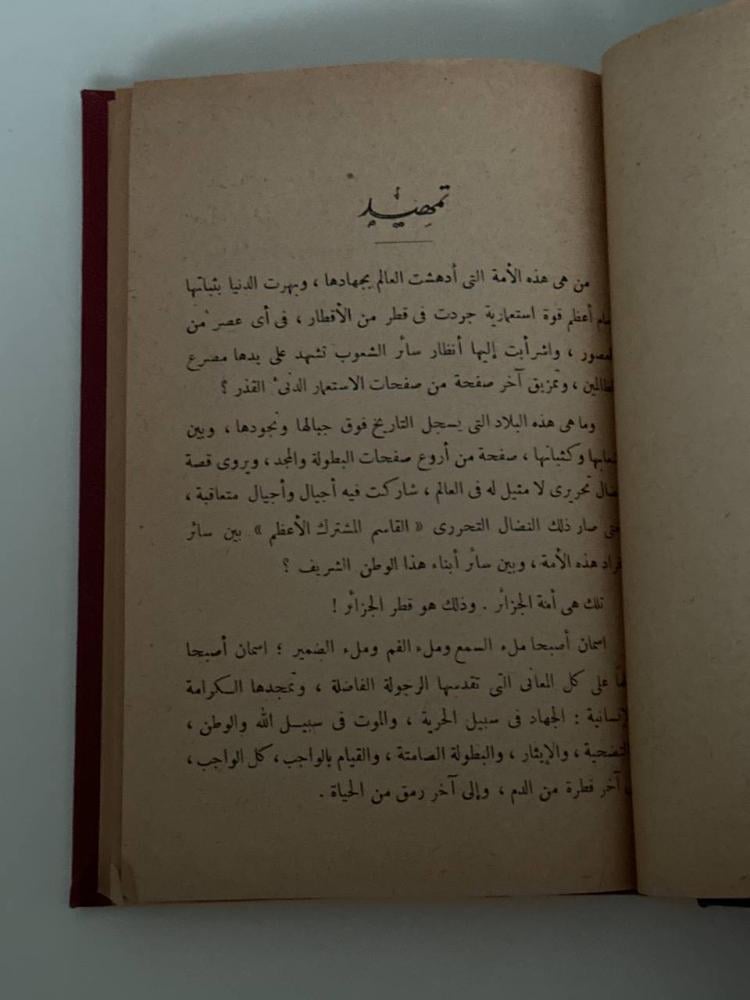 تمهيد
من هى هذه الأمة التى أدهشت العالم بجهادها ، وبهرت الدنيا بثباتها
أعظم قوة استعمارية جردت فى قطر من الأقطار ، فى أى عصر من
العصور ، واشرأبت إليها أنظار سائر الشعوب تشهد على يدها مصرع
الظالمين ، وتمزيق آخر صفحة من صفحات الاستعمار الدنىء القذر ؟
وما هى هذه البلاد التى يسجل التاريخ فوق جبالها ونجودها ، وبين
وكثبانها ، صفحة من أروع صفحات البطولة والمجد ، ويروى قصة
نضال تحريرى لا مثيل له فى العالم ، شاركت فيه أجيال وأجيال متعاقبة ،
حتى صار ذلك النضال التحررى « القاسم المشترك الأعظم » بين سائر
أفراد هذه الأمة ، وبين سائر أبناء هذا الوطن الشريف ؟
تلك هى أمة الجزائر . وذلك هو قطر الجزائر !
اسمان أصبحا ملء السمع وملء الفم وملء الضمير ؛ اسمان أصبحا
على كل المعانى التى تقدسها الرجولة الفاضلة ، وتمجدها الكرامة
الإنسانية : الجهاد فى سبيل الحرية ، والموت فى سبيل الله والوطن ،
والتضحية ، والإيثار ، والبطولة الصامتة ، والقيام بالواجب ، كل الواجب ،
آخر قطرة من الدم ، وإلى آخر رمق من الحياة .